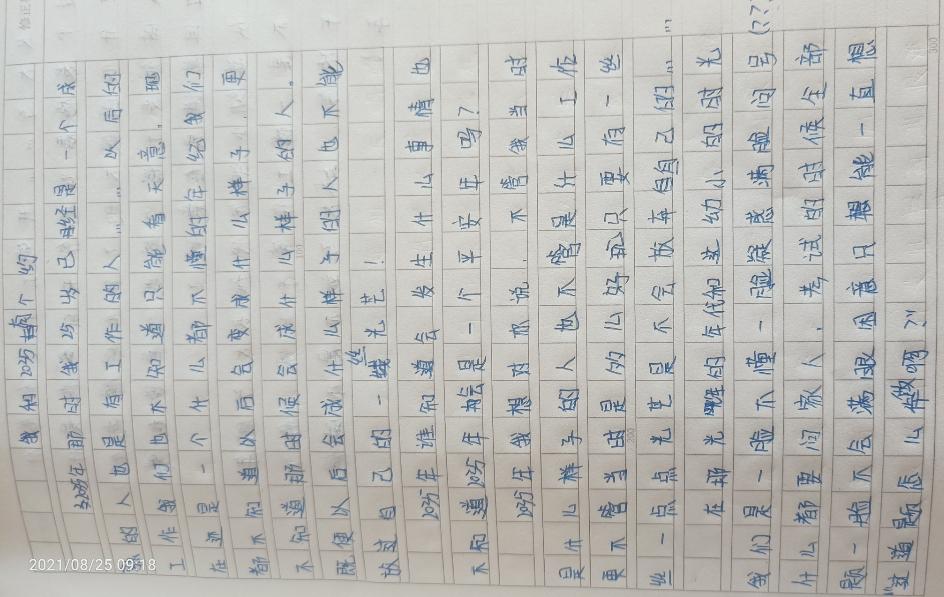 我和2035有个约
在2035那时我25岁已经是一个成
的人也是有工作的人...以后的
工作我们也不知道只能看天意.现
在还是一个什么都不懂的年纪我们
都不知道以后会变成什么样子.更
不知道那时候会成什么样子的人.
既便以后会成什么样子的人也不能
放过自己的一丝光芒!
2035年谁知道会发生什么事情也
不知道2035年会是一个平安年吗?
2035年我想对你说.不管我当时
是什么样子的人也不管是什么工作
更不管当时是多么好玩只要有一丝
丝一点点光芒是不会放弃自己的......
在那光鲜的年代和这幼小的时光
我们是一脸不懂一脸疑惑满脸问号(???)
什么都要问家人.考试的时候全部
题一题不会满眼困意只想能一直想
“这道题么做啊?”
2021/08/25 09:18